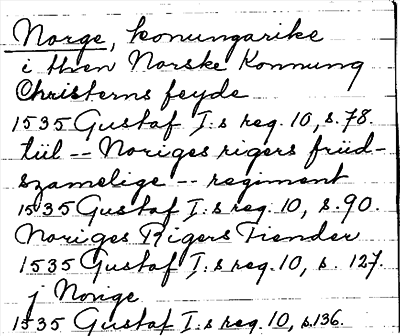 Norge, konungarike
i then Norske Konnung
Christerns feyde
1535 Gustaf I:s reg. 10, s. 78.
tiil -- Noriges rigers friid-
szamelige -- regiment
1535 Gustaf I:s reg. 10, s. 90.
Noriges Rigers Fiender
1535 Gustaf I:s reg. 10, s. 127.
j Norige
1535 Gustaf I:s reg. 10, s. 136.